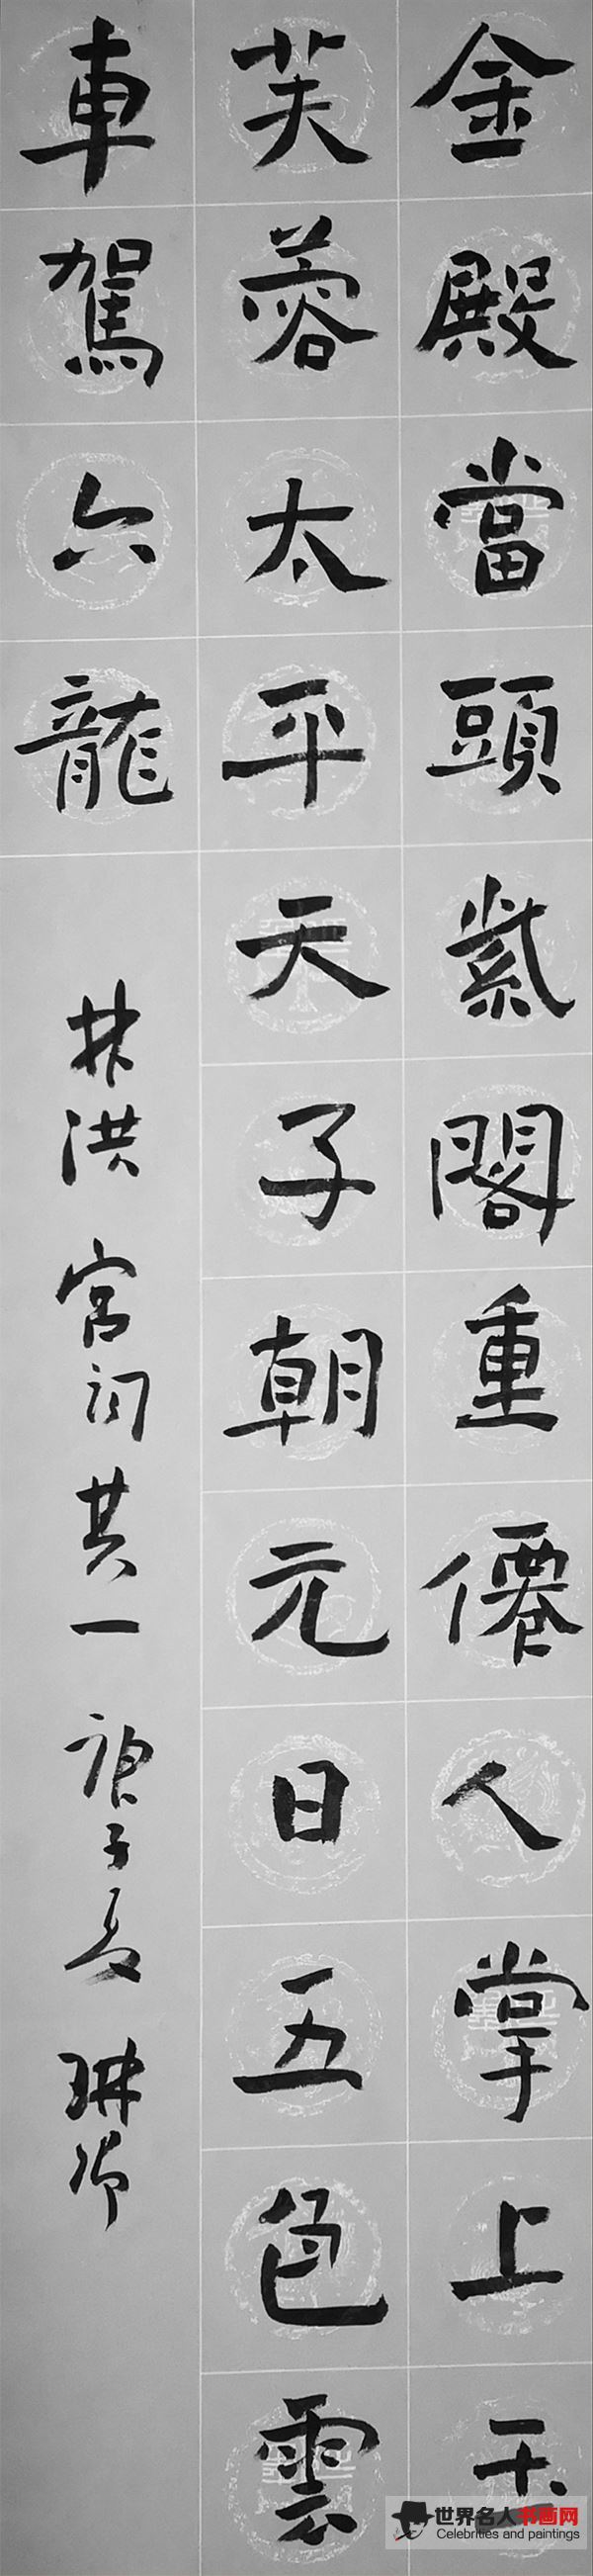 金殿當頭紫閣重僊人掌上玉
芙蓉太平天子朝元日五色雲
車駕六龍
林洪宮詞其一庚子夏
世界名人书画网
Celebrities and paintings